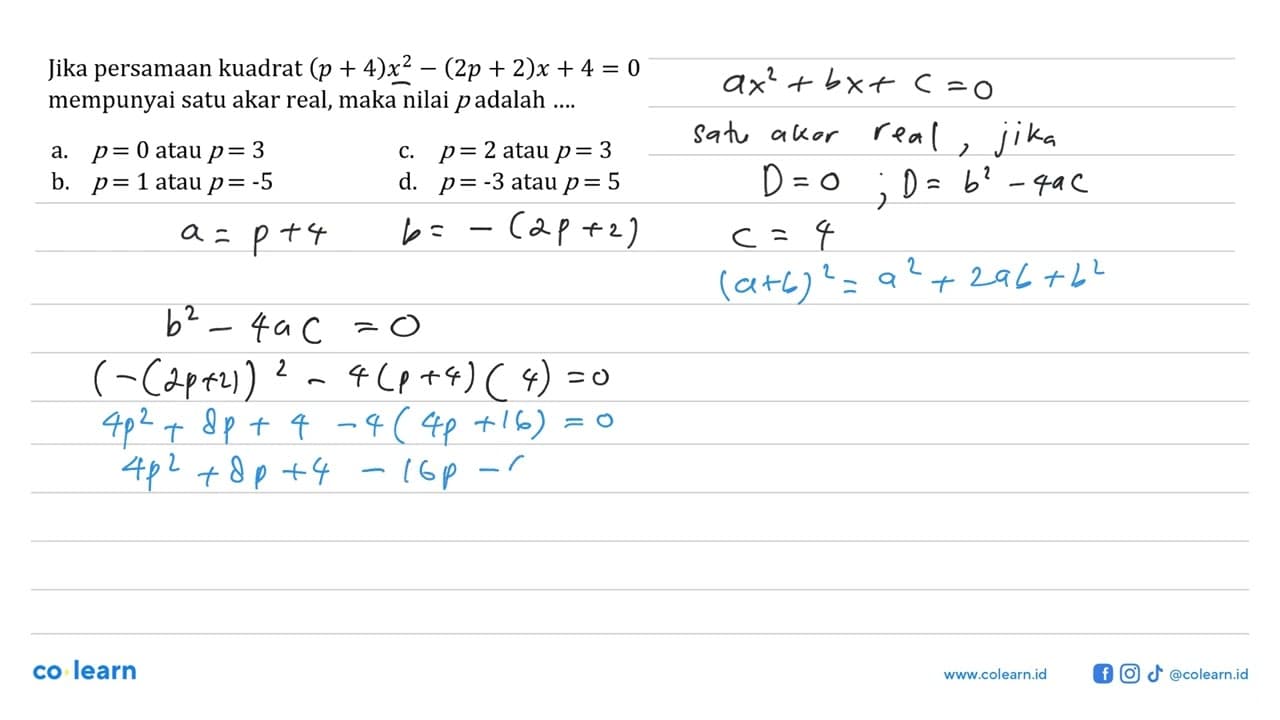 Jika persamaan kuadrat (p + 4)x² − (2p + 2)x + 4 = 0
mempunyai satu akar real, maka nilai p adalah ....
a. p = 0 atau p = 3
c. p = 2 atau p = 3
b. p = 1 atau p = -5
d. p = -3 atau p = 5
ax² + bx + c = 0
satu akar real, jika
D = 0 ; D = b² - 4ac
a = p + 4 b = - (2p + 2) c = 4
(a+b)² = a² + 2ab + b²
b² - 4ac = 0
(-(2p+2))² - 4(p+4)(4) = 0
4p² + 8p + 4 - 4(4p + 16) = 0
4p² + 8p + 4 - 16p -
co learn
www.colearn.id
@colearn.id